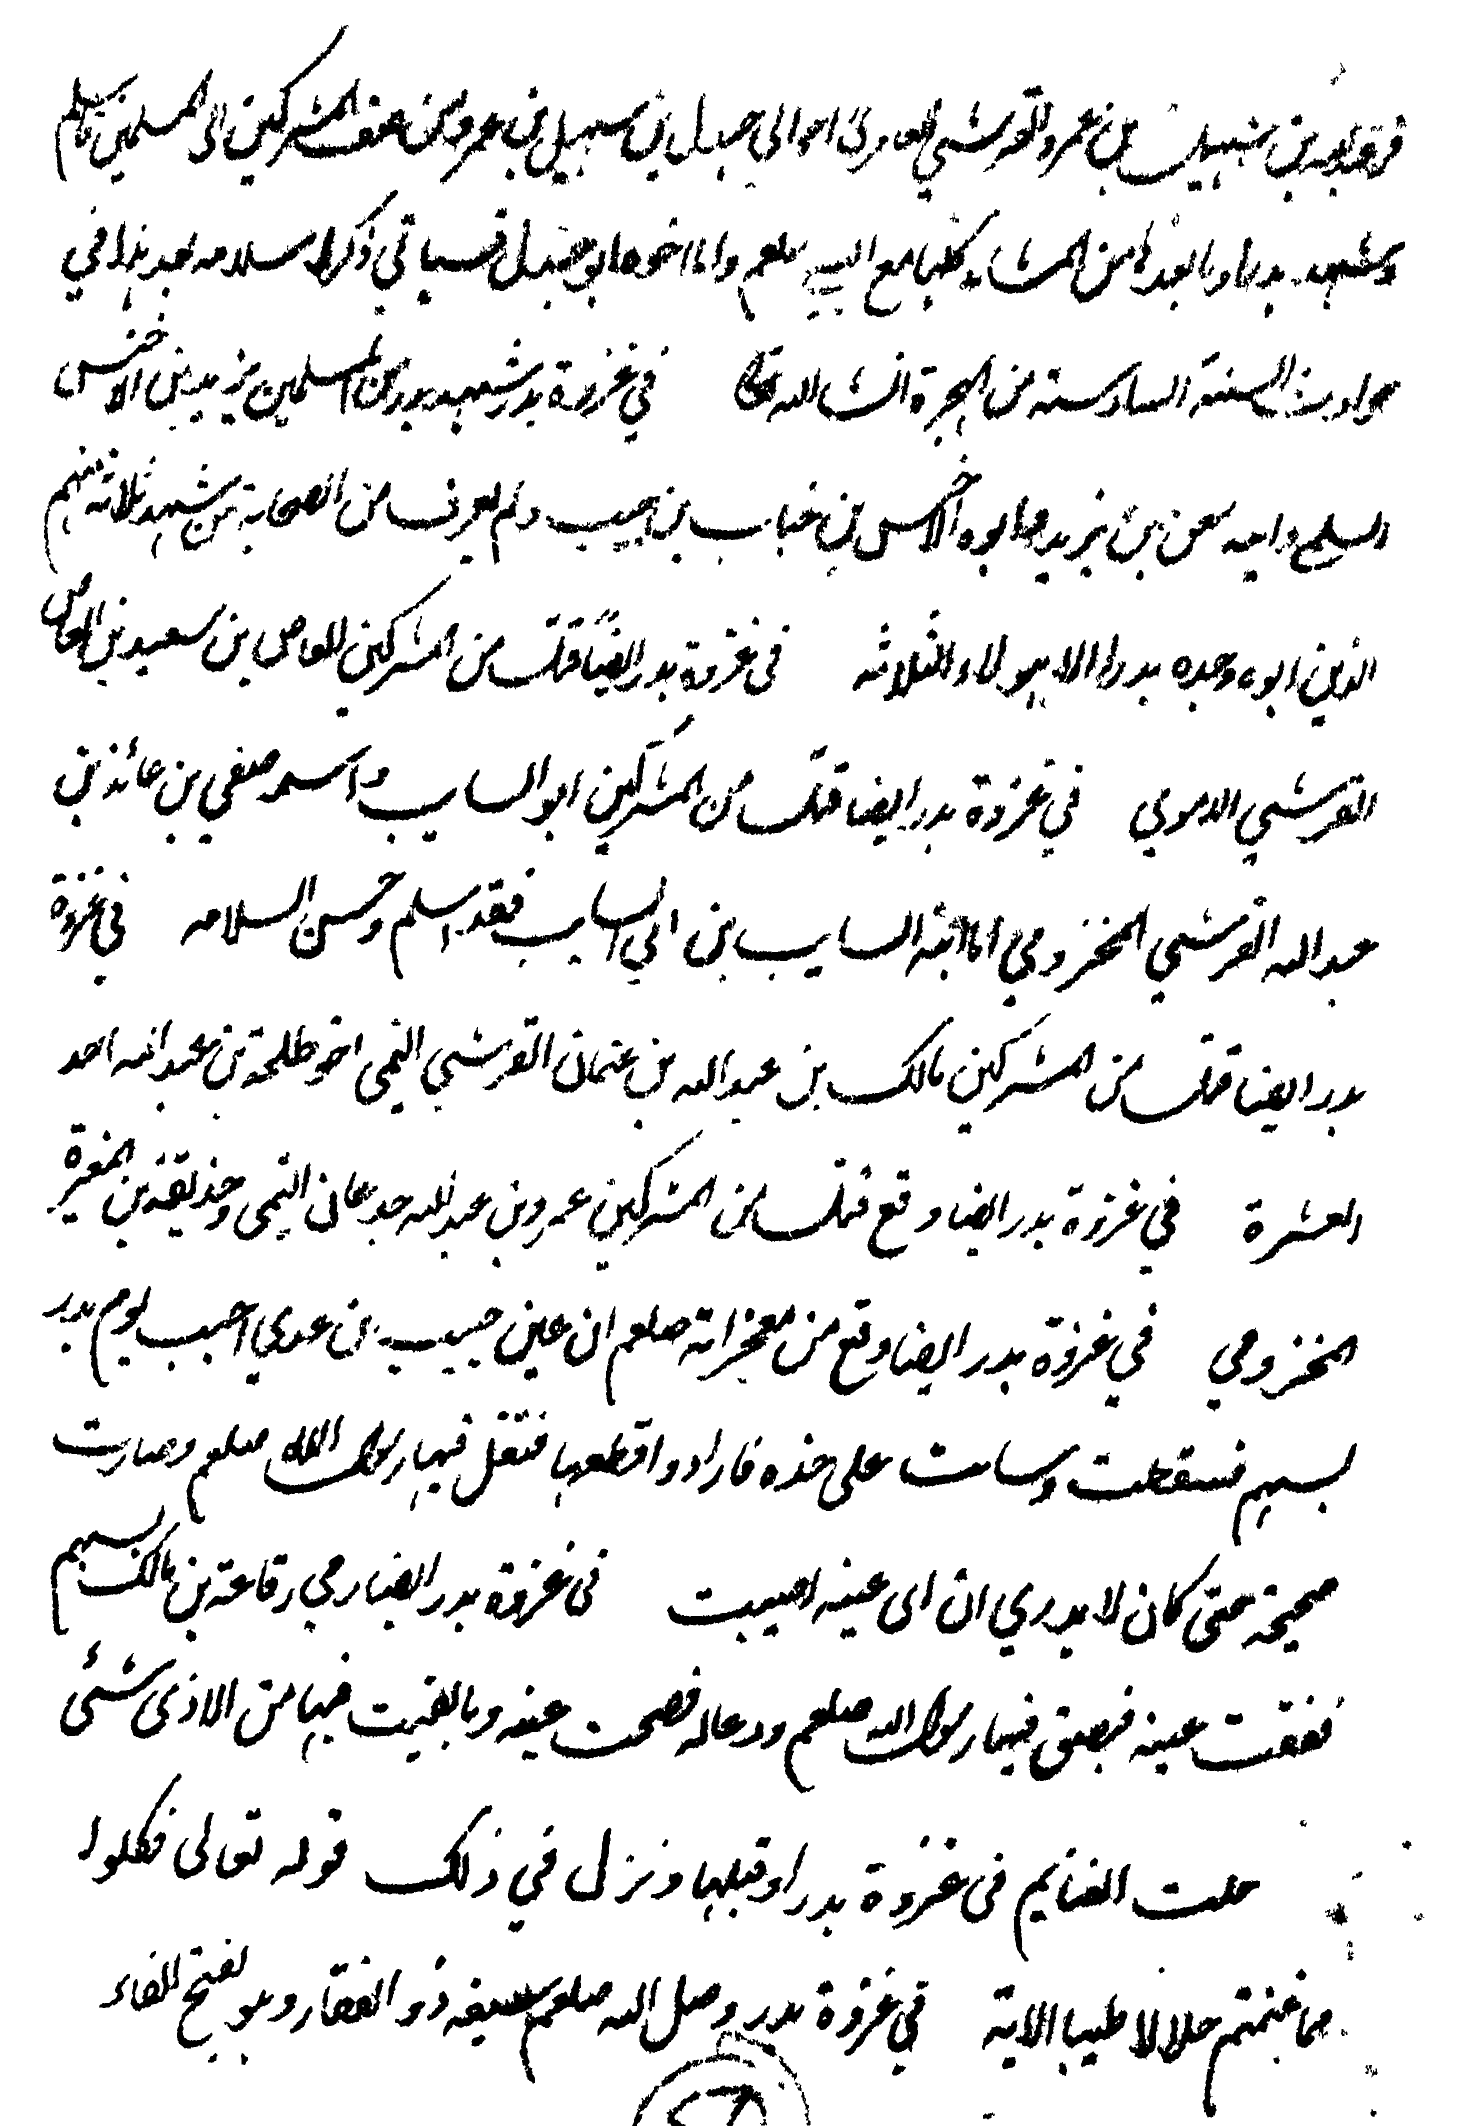 فر عبدالله بن سهيل بن عمرو القرشي العامري اخو ابي جندل بن سهيل بن عمرو من صف المشركين الى المسلمين فاسلم
وشهد بدرا وما بعدها من المشاهد كلها مع النبي صلعم واما اخوه ابو جندل فسياتي ذكر اسلامه بعد هذا في
حوادث السنة السادسة من الهجرة انشاالله تعالى في غزوة بدر شهد بدرا من المسلمين يزيد بن الاخنس
السلمي وابنه معن بن يزيد وابوه الاخنس بن خباب بن حبيب ولم يعرف من الصحابة من شهد ثلاثة منهم
الذين ابوه وجده بدرا الا هولاء الثلاثة في غزوة بدر ايضا قتل من المشركين العاص بن سعيد بن العاص
القرشي الاموي في غزوة بدر ايضا قتل من المشركين ابو السايب واسمه صيفي بن عائذ بن
عبد الله القرشي المخزومي اما ابنه السايب بن ابي السايب فقد اسلم وحسن اسلامه في غزوة
بدر ايضا قتل من المشركين مالك بن عبد الله بن عثمان القرشي التيمي اخو طلحة بن عبد الله احد
العشرة في غزوة بدر ايضا وقع قتل من المشركين عمرو بن عبد لله جدعان التيمي وحذيفة بن المغيرة
المخزومي في غزوة بدر ايضا وقع من معجزاته صلعم ان عين حبيب بن عدي اصيب يوم بدر
بسهم فسقطت وسالت على خده فارادوا قطعها فتفل فيها رسول الله صلعم وصارت
صحيحة حتى كان لا يدري ان اى عينه اصيبت في غزوة بدر ايضا رمي رفاعة بن مالك بسهم
ففقت عينه فبصق فيها رسول الله صلعم ودعا له فصحت عينه وما بقيت فيها من الاذى شئ
حلت الغنايم في غزوة بدر او قبلها ونزل في ذلك قوله تعالى فكلوا
مما غنمتم حلالا طيبا الاية في غزوة بدر وصل اليه صلعم سيفه ذو الفقار وهو بفتح الفاء